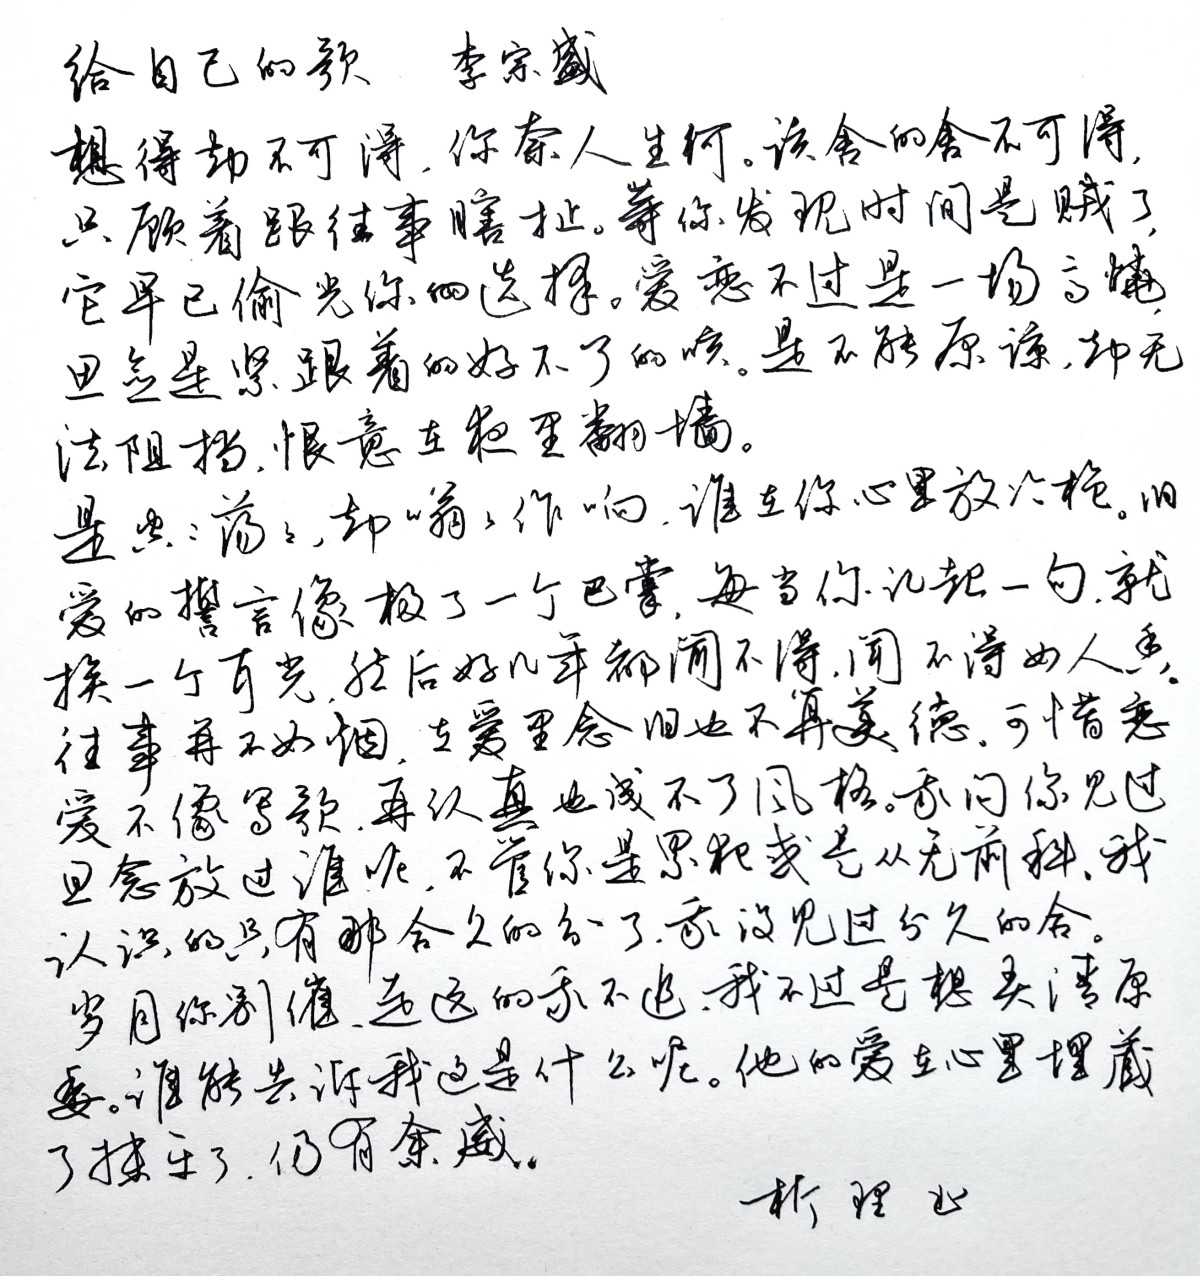 给自己的歌 李宗盛
想得却不可得，你奈人生何。该舍的舍不可得，
只顾着跟往事瞎扯。等你发现时间是贼了，
它早已偷光你的选择。爱恋不过是一场高烧，
思念是紧跟着的好不了的咳。是不能原谅，却无
法阻挡，恨意在夜里翻墙。
是空空荡荡，却嗡嗡作响，谁在你心里放冷枪。旧
爱的誓言像极了一个巴掌，每当你记起一句，就
挨一个耳光，然后好几年都闻不得，闻不得女人香。
往事再不如烟，在爱里念旧也不再美德，可惜恋
爱不像写歌，再认真也成不了风格。我问你见过
思念放过谁呢，不管你是累犯或是从无前科，我
认识的只有那合久的分了，我没见过分久的合。
岁月你别催，走远的我不追，我不过是想弄清原
委。谁能告诉我这是什么呢。他的爱在心里埋藏
了抹平了，仍有余威。
析理